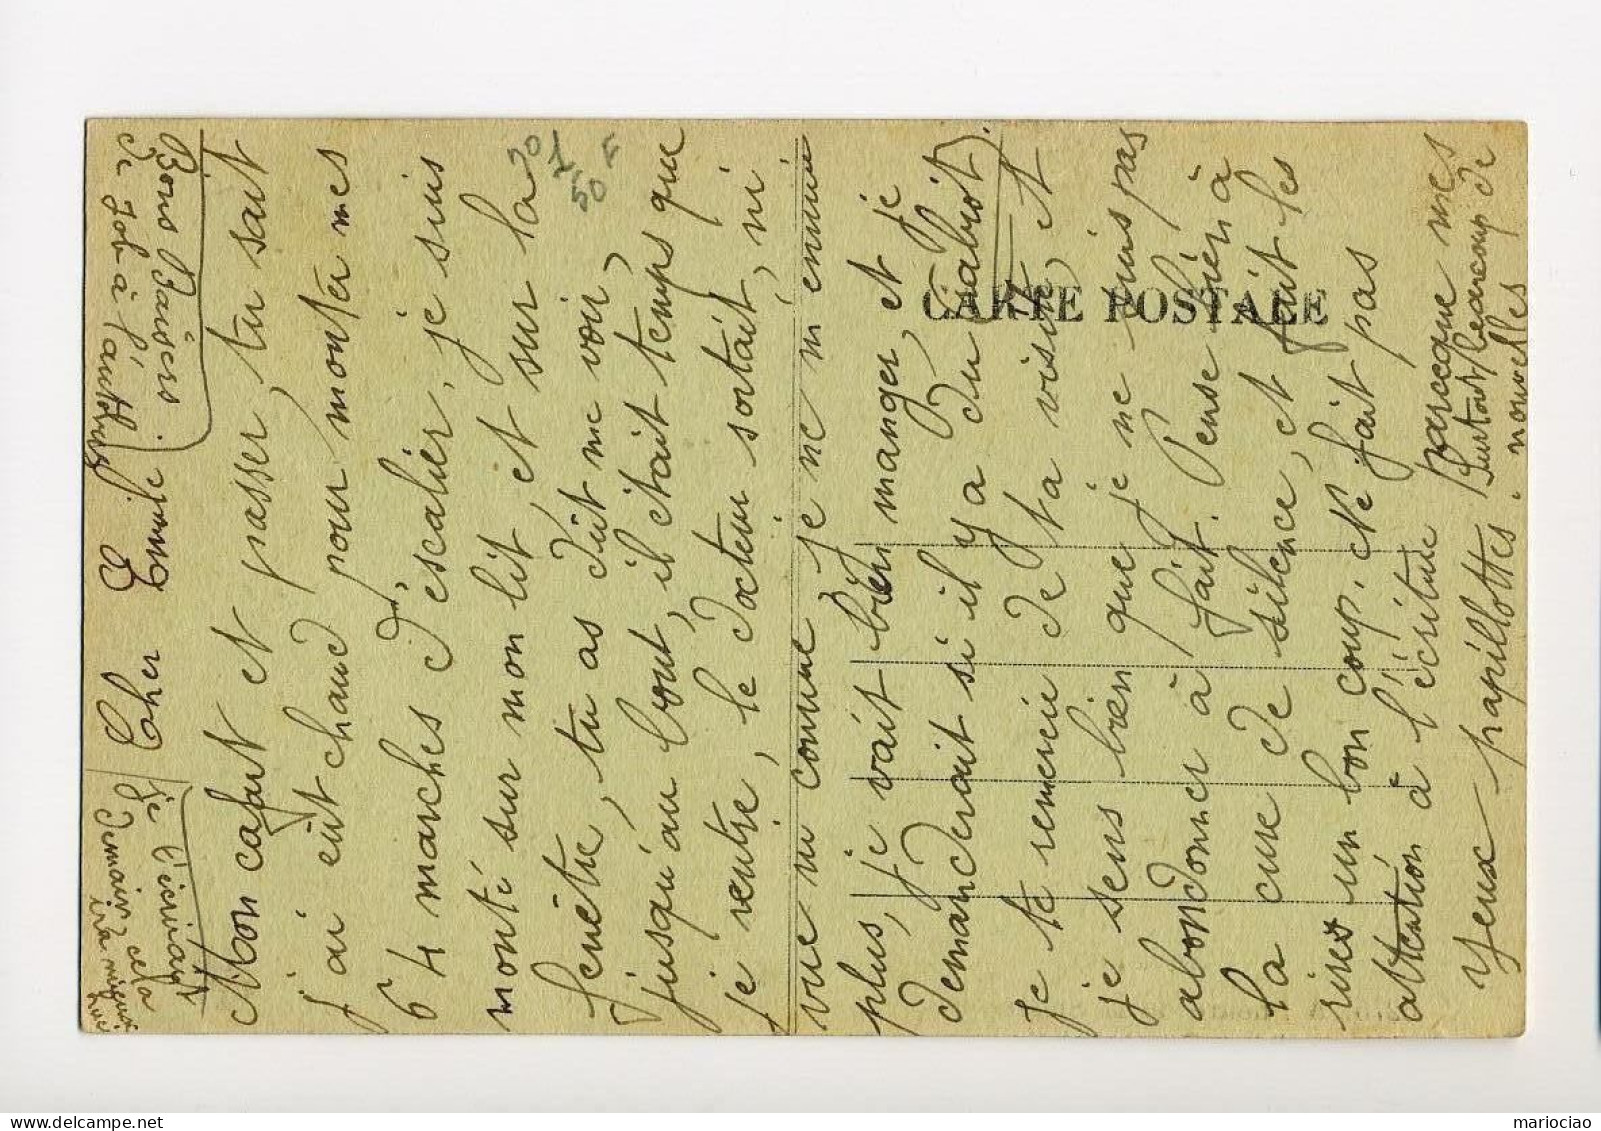 Cher Emile
Mon cafart et passer, tu sait
j'ai eût chaud pour monter mes
64 marches d'escalier, je suis
monté sur mon lit, et sur la
fenêtre, tu as dût me voir,
jusqu'au bout, il était temps que
je rentre, le docteur sortait, ni
vue ni connue je ne m'ennuie
plus, je vait bien manger, et je
demanderait si il y a du (rabiot).
je te remercie de ta visite, et
je sens bien que je ne suis pas
abandonner à fait. Pense bien à
la cure de silence, et fait les
rires un bon coup. Ne fait pas
attention à l'écriture parceque mes
yeux papillottes.
Surtout beaucoup de
nouvelles
Bons Baisers
de Job à l'
je t'écrirais
demain, cela
ira mieux
50 F
CARTE POSTALE
mariociao